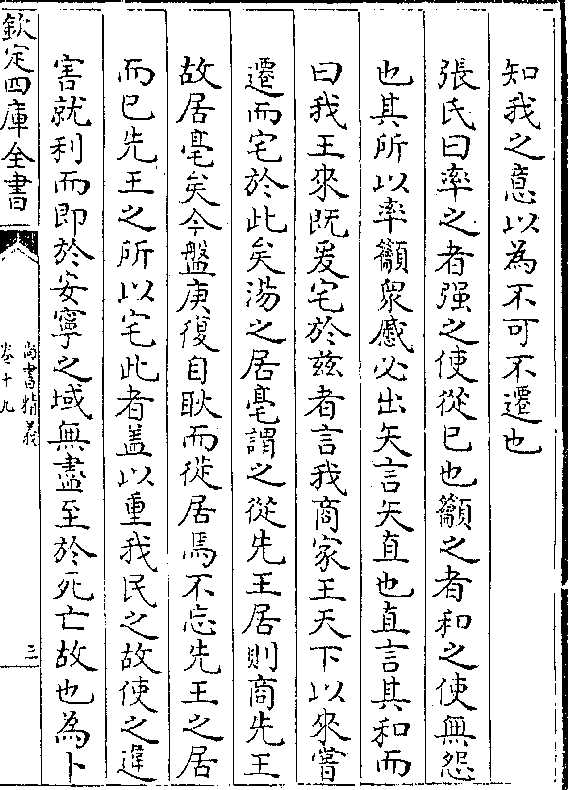 知我之意以為不可不遷也
張氏曰率之者强之使從已也籲之者和之使無怨
也其所以率籲衆慼必出矢言矢直也直言其和而
曰我王來既爰宅於兹者言我商家王天下以來嘗
遷而宅於此矣湯之居亳謂之從先王居則商先王
故居亳矣今盤庚復自耿而徙居焉不忘先王之居
而已先王之所以宅此者盖以重我民之故使之違
害就利而即於安寧之域無盡至於死亡故也為卜
欽定四庫全書
尚書精義
卷十九
三